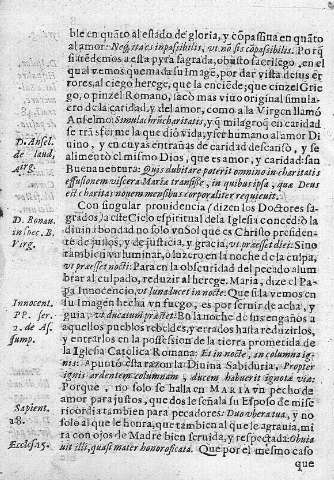 8
ble en quãto al estado de gloria, y cõpassiua en quanto
al amor: Neq; itaes inpassibilis, vt no sis cõpassibilis. Porq̃
si atẽdemos a esta pyra sagrada, obusto sacrilego, en el
qual vemos quemada su Image, por dar vista de sus er
rores, al ciego herege, que la enciẽde; que cinzel Grie-
go, o pinzel Romano, sacò mas viuo original simula-
cro de la caridad, y del amor, como a la Virgen llamó
Anselmo: Simulachrũ charitatis, y q̃ milagro, en caridad
se trãsferme la que dió vida, y ser humano al amor Di
uino, y en cuyas entrañas de caridad descansó, y se
alimentó el mismo Dios, que es amor, y caridad: san
Buenauentura: Quis dubitare poterit omnino in charitatis
effusionem viscera Mariæ transisse, in quibus ipsa, que Deus
est charitas nouem mensibus corporaliter requieuit.
D. Ansel.
de laud,
Virg.
D. Bonau.
in spec. B.
Virg.
Con singular prouidencia (dizen los Doctores sa-
grados) a este Cielo espiritual de la Iglesia concedio la
diuina bondad no solo vn Sol que es Christo presiden-
te de justos, y de justicia, y gracia, vt præesset diei: Sino
tambien vn luminar, o luzero en la noche de la culpa,
vt præesset nocti: Para en la obscuridad del pecado alum
brar al culpado, reduzir al herege. Maria, dize el Pa-
pa Innocencio, vt luna lucet in nocte: Que si la vemos en
su Imagen hecha vn fuego, es por seruir de acha, y
guia: vt ducatum præstet: En la noche de sus engaños a
aquellos pueblos rebeldes, y errados hasta reduzirlos,
y entrarlos en la possession de la tierra prometida de
la Iglesia Catolica Romana: Et in nocte, in columna ig-
nis: Apuntó esta razon la Diuina Sabiduria, Propter
ignis ardentem columnam, ducem habuerit ignotæ viæ:
Innocent.
PP. ser.
2. de As-
sump.
Porque, no solo se halla en MARIA vn pecho de
amor para justos, que dos le señala su Esposo de mise
ricordia tambien para pecadores: Duo vbera tua, y no
solo al que le honra, que tambien al que le agrauia, mi
ra con ojos de Madre bien seruida, y respectada: Obuia
uit illi, quasi mater honorificata. Que por el mismo caso
Sapient.
18.
Eccles. 15.
que